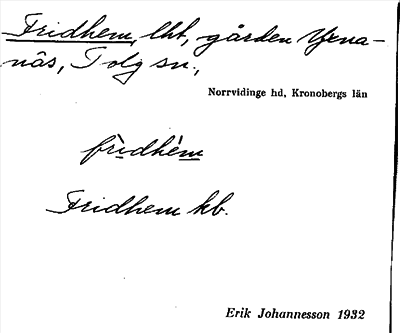 Fridhem, lht, gården Yxna-
näs, Tolg sn.,
Norrvidinge hd, Kronobergs län
fri̲dhèm
Fridhem kb.
Erik Johannesson 1932